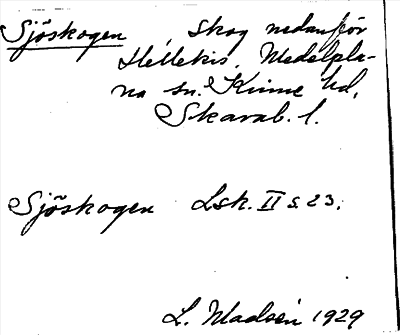 Sjöskogen, Skog nedanför
Hellekis, Medelpla-
na sn. Kinne hd,
Skarab. l.
Sjöskogen Lsk. II s. 23.
L. Madsén 1929